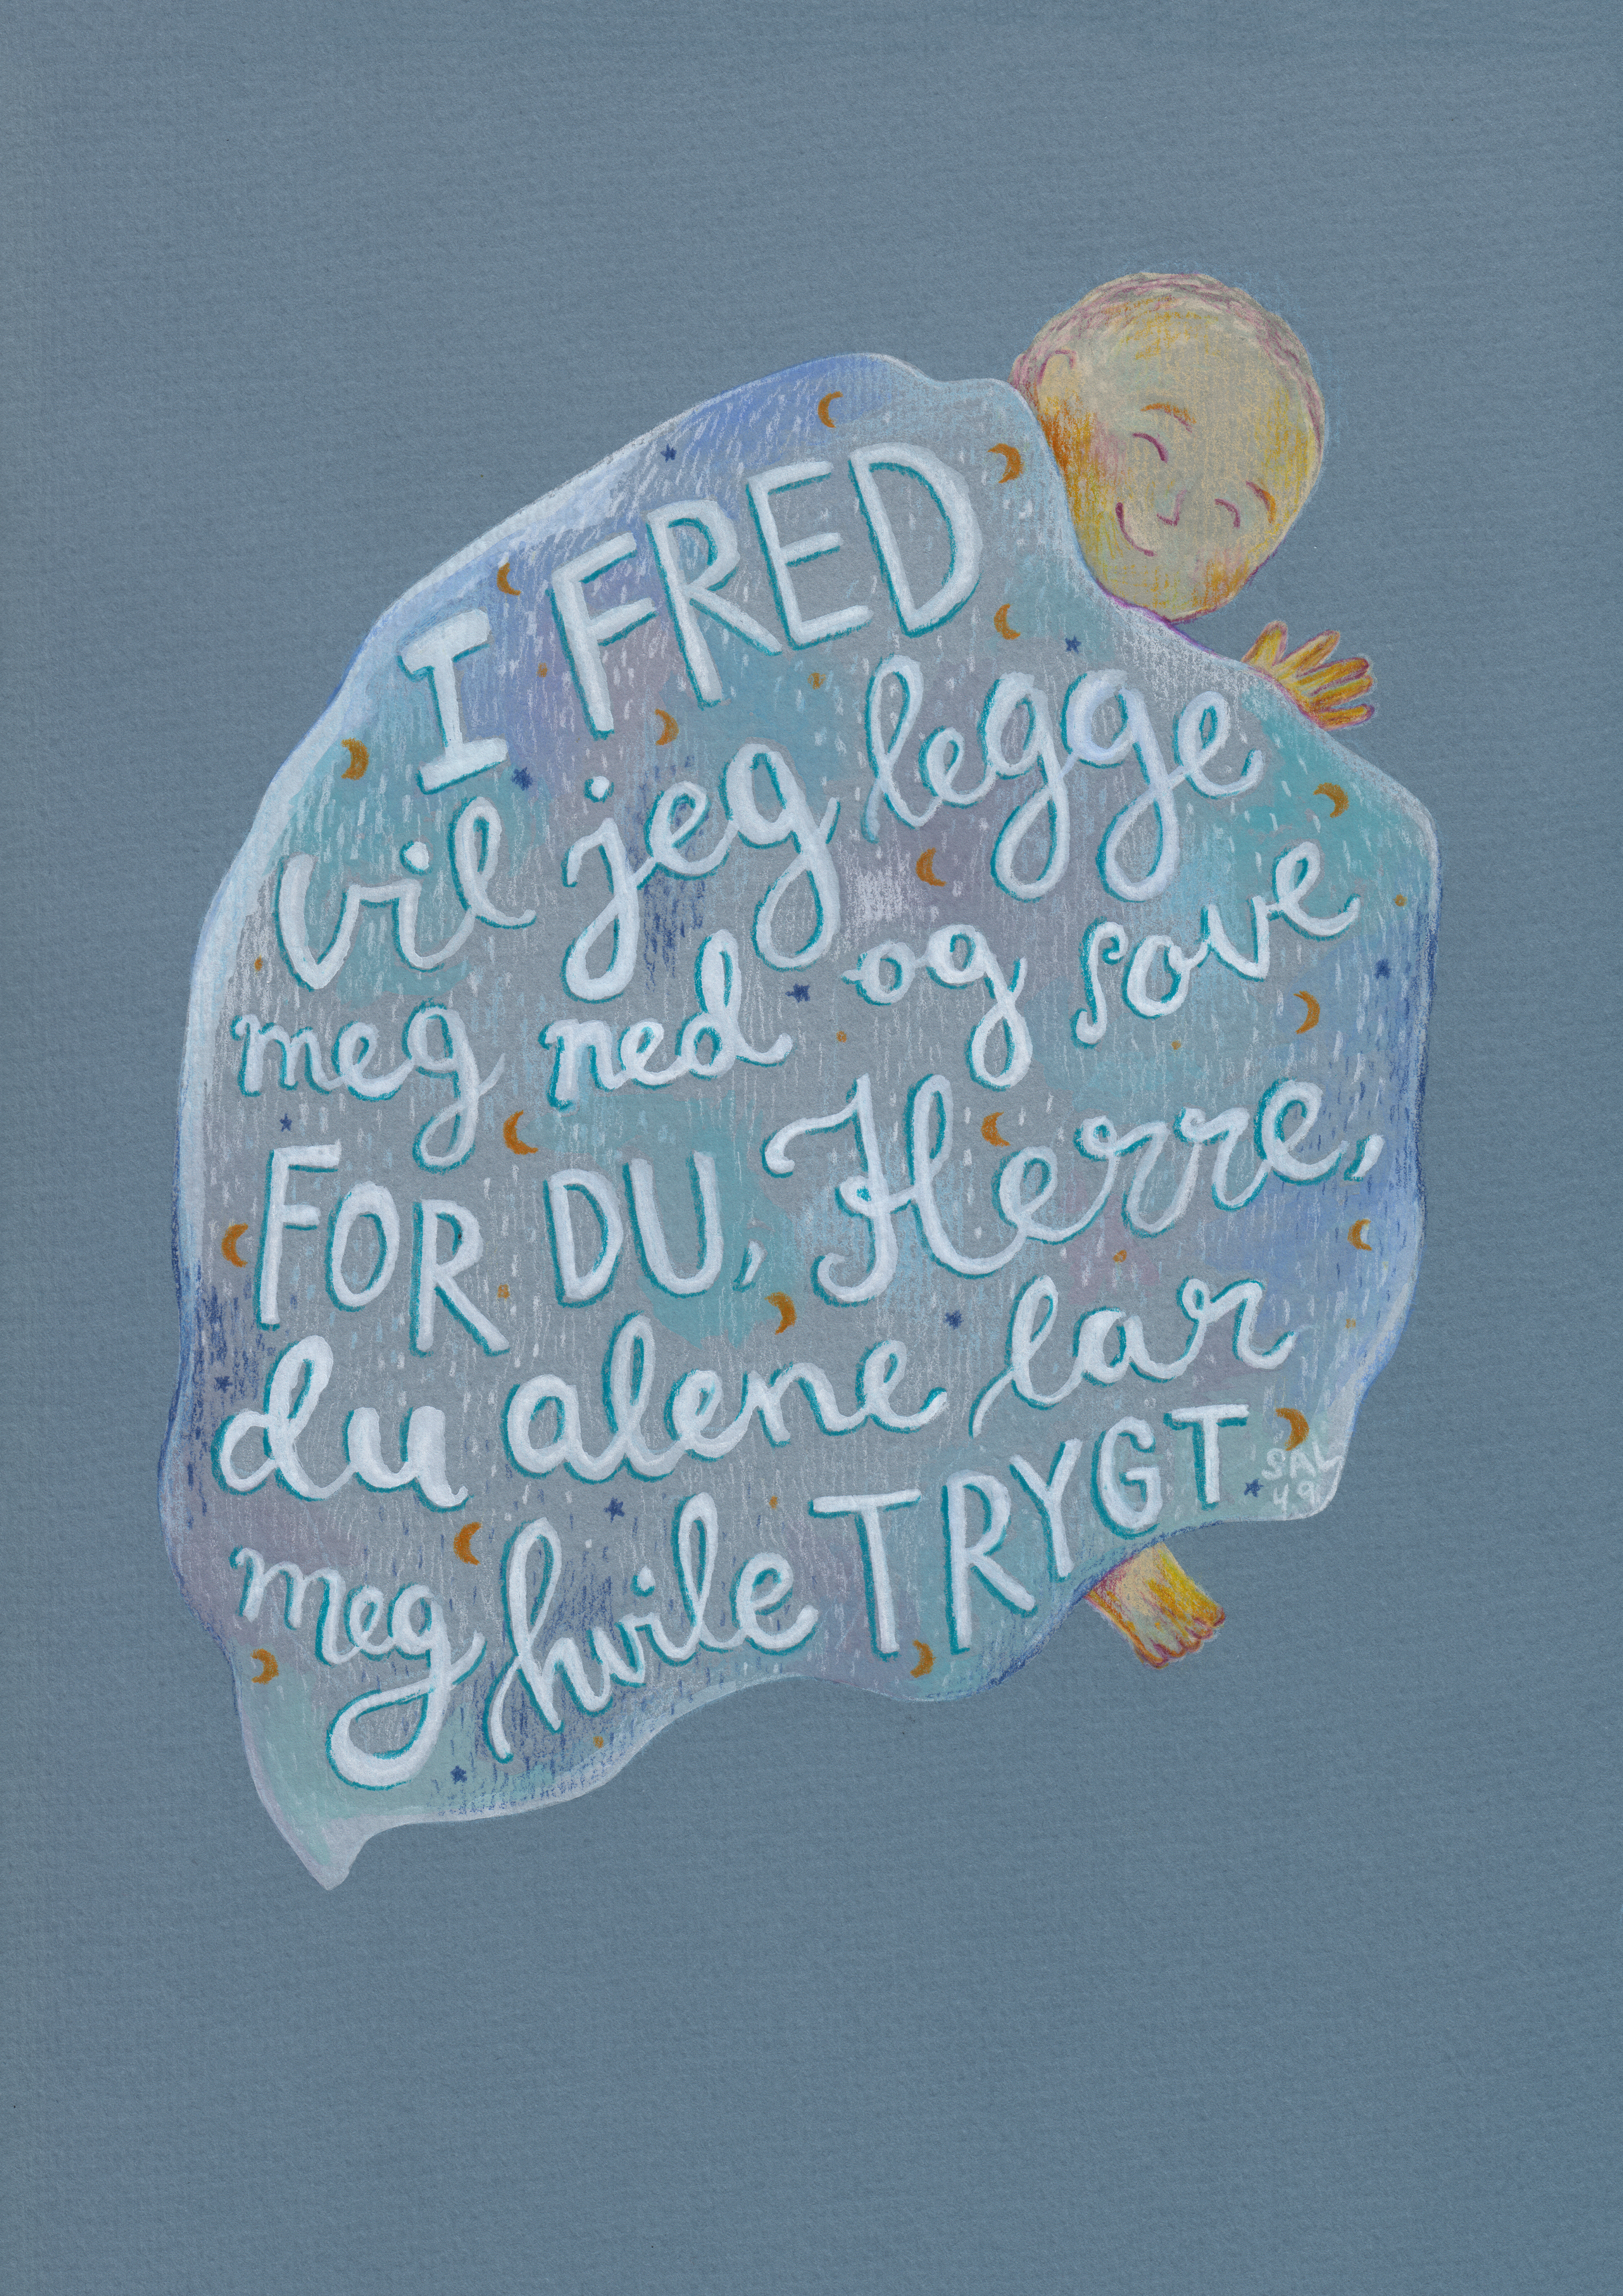 I FRED
vil jeg legge
meg ned og sove
FOR DU, Herre,
du alene lar
meg hvile TRYGT
SAL
4,9